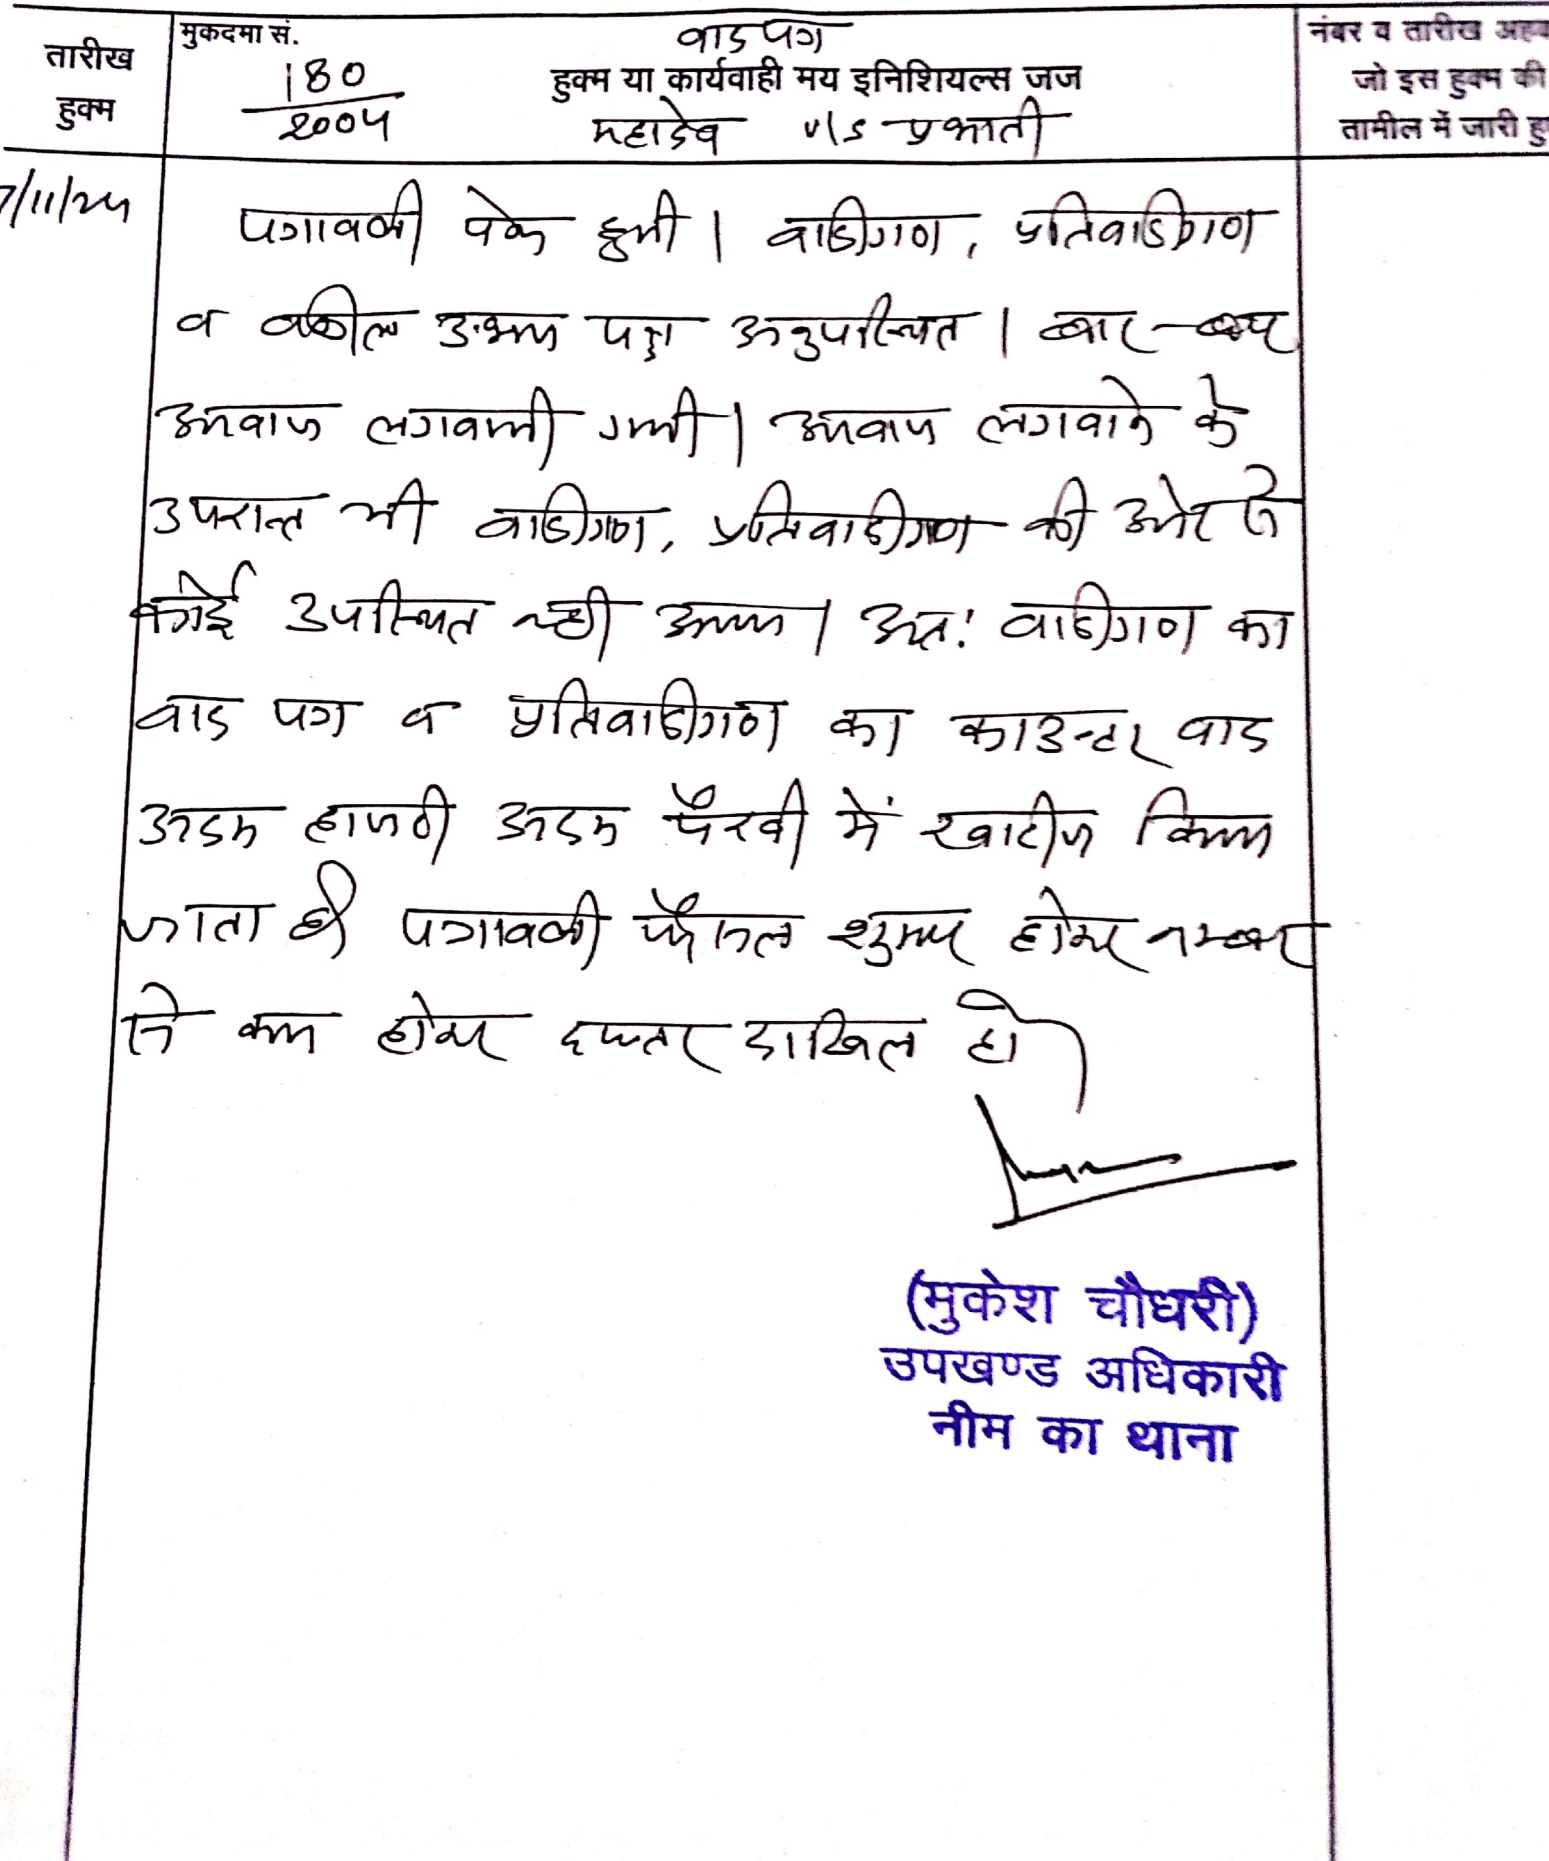 तारीख
हुक्म
मुकदमा सं.
180
2004
वाद पत्र
हुक्म या कार्यवाही मय इनिशियल्स जज
महादेव v/s प्रभाती
नंबर व तारीख अहव
जो इस हुक्म की
तामील में जारी हु
7/11/24
पत्रावली पेश हुयी। वादीगण, प्रतिवादीगण
व वकील उभय पक्ष अनुपस्थित। बार-बार
आवाज लगवायी गयी। आवाज लगवाने के
उपरान्त भी वादीगण, प्रतिवादीगण की ओर से
कोई उपस्थित नहीं आया। अतः वादीगण का
वाद पत्र व प्रतिवादीगण का काउन्टर वाद
अदम हाजरी अदम पैरवी में खारीज किया
जाता है। पत्रावली फैसल शुमार होकर नम्बर
से कम होकर दफ्तर दाखिल हो।
(मुकेश चौधरी)
उपखण्ड अधिकारी
नीम का थाना